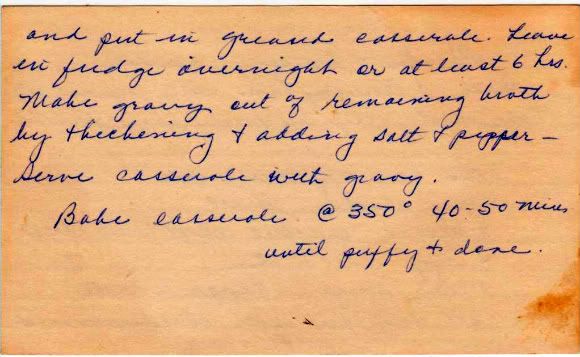 and put in greased casserole. Leave
in fridge overnight or at least 6 hrs.
Make gravy out of remaining broth
by thickening + adding salt + pepper –
Serve casserole with gravy.
Bake casserole @ 350° 40-50 mins
until puffy + done.